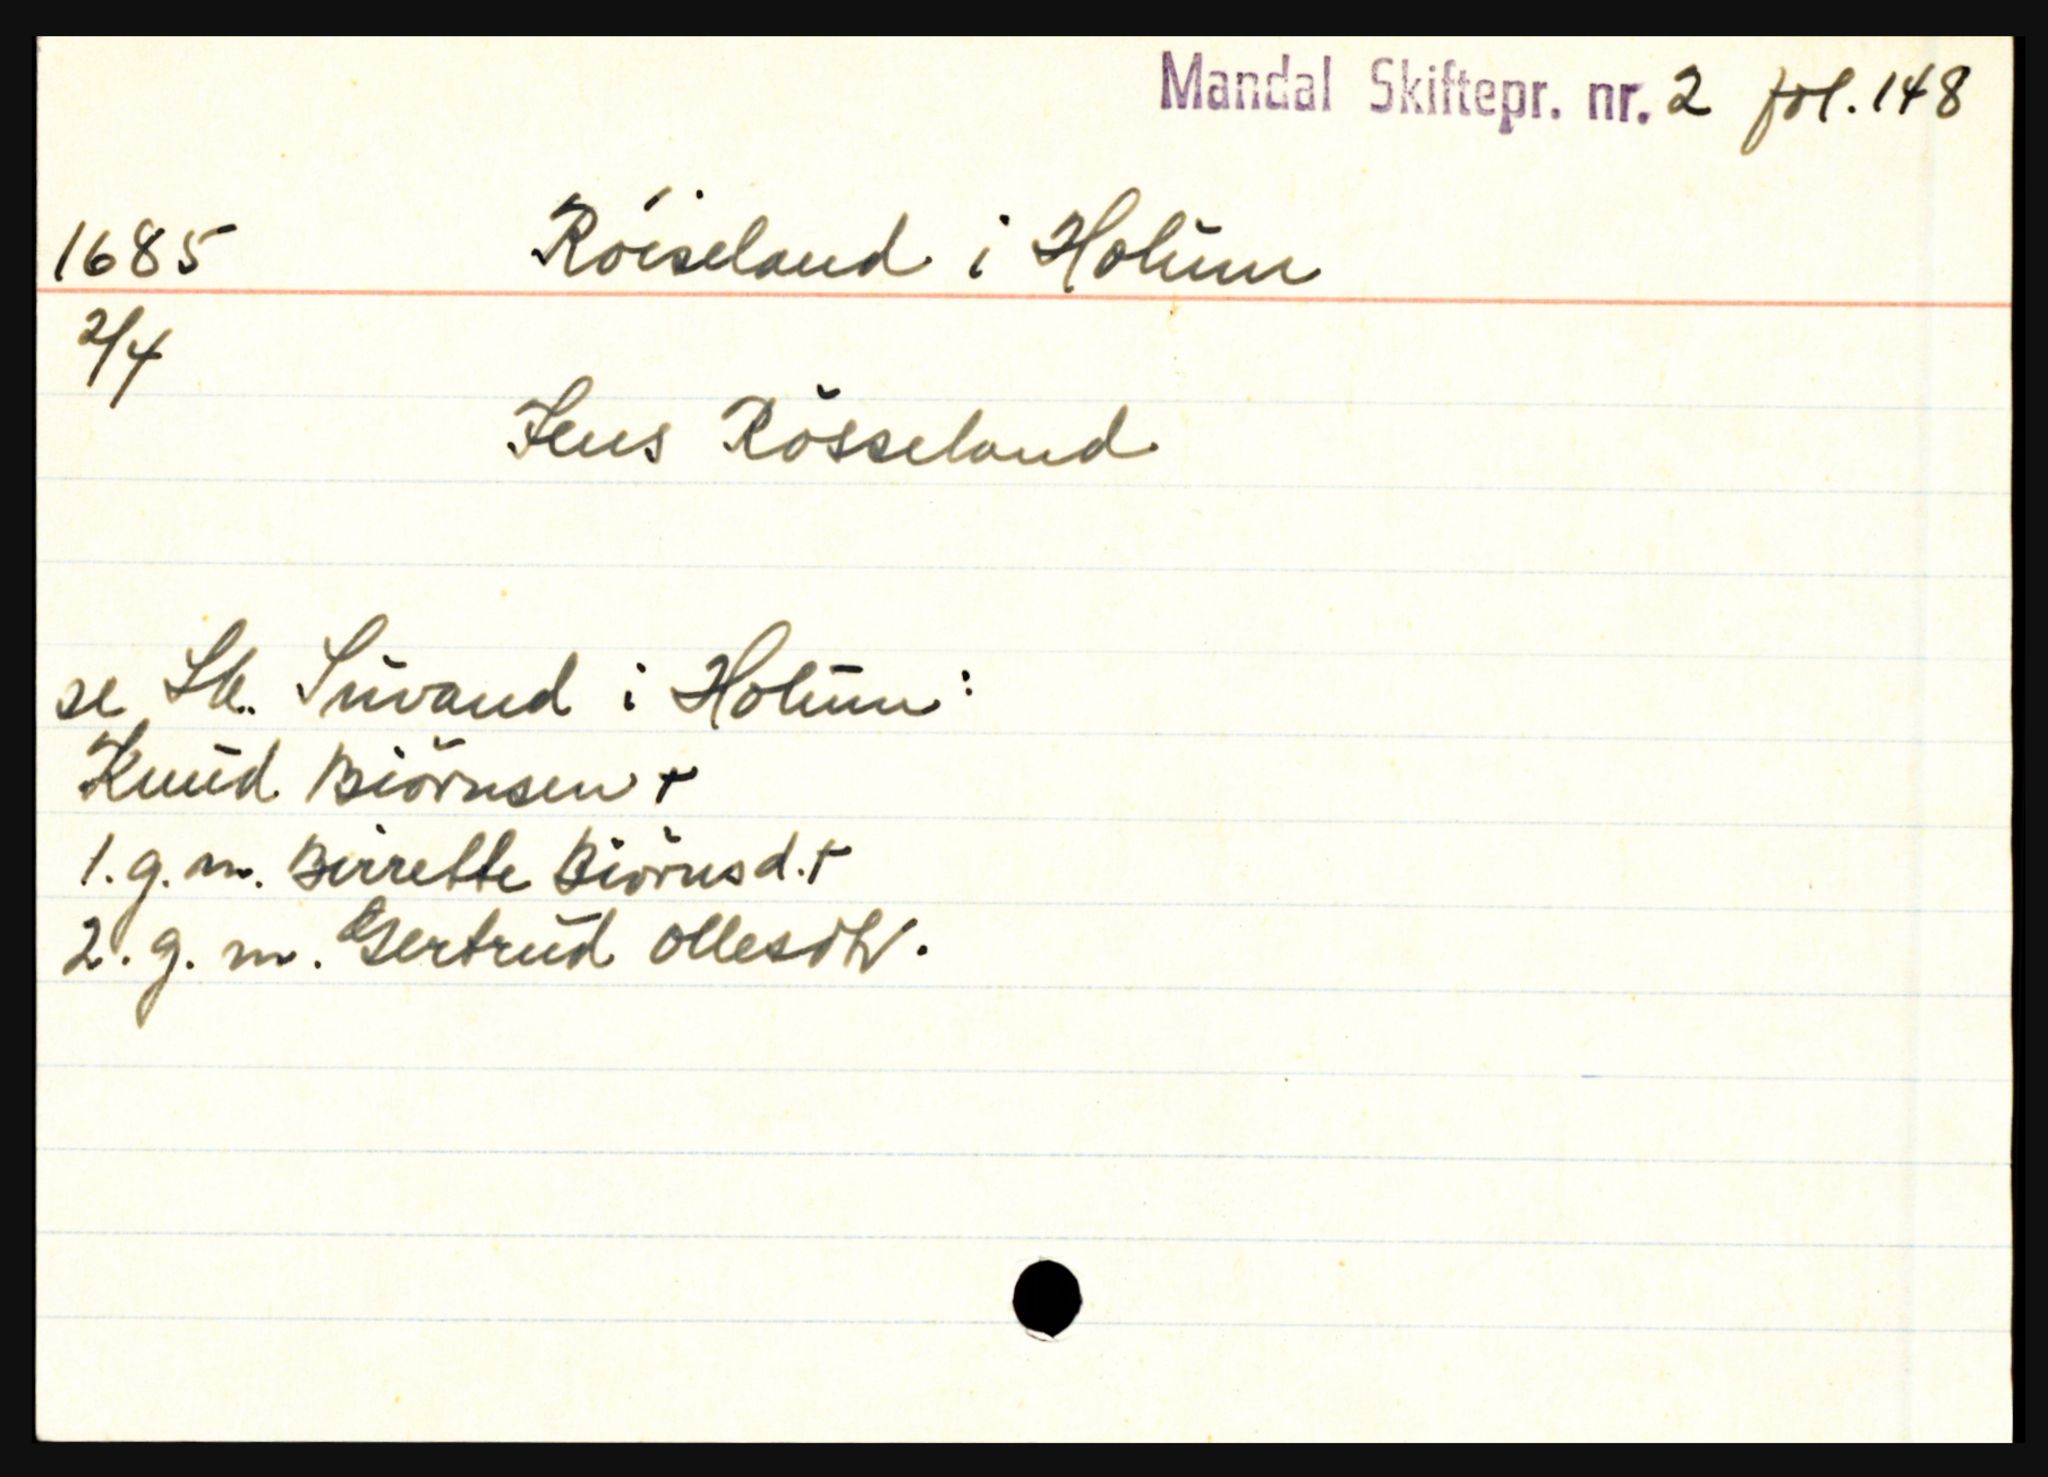 Mandal Skiftepr. nr. 2 fol. 148
1685 Röiseland i Holum
2/4
Jens Rösseland
se Sk. Suvand i Holum:
Knud Biörnsen +
1. g. m. Birrette Biörnsd. +
2. g. m. Gertrud Ollesdtr.